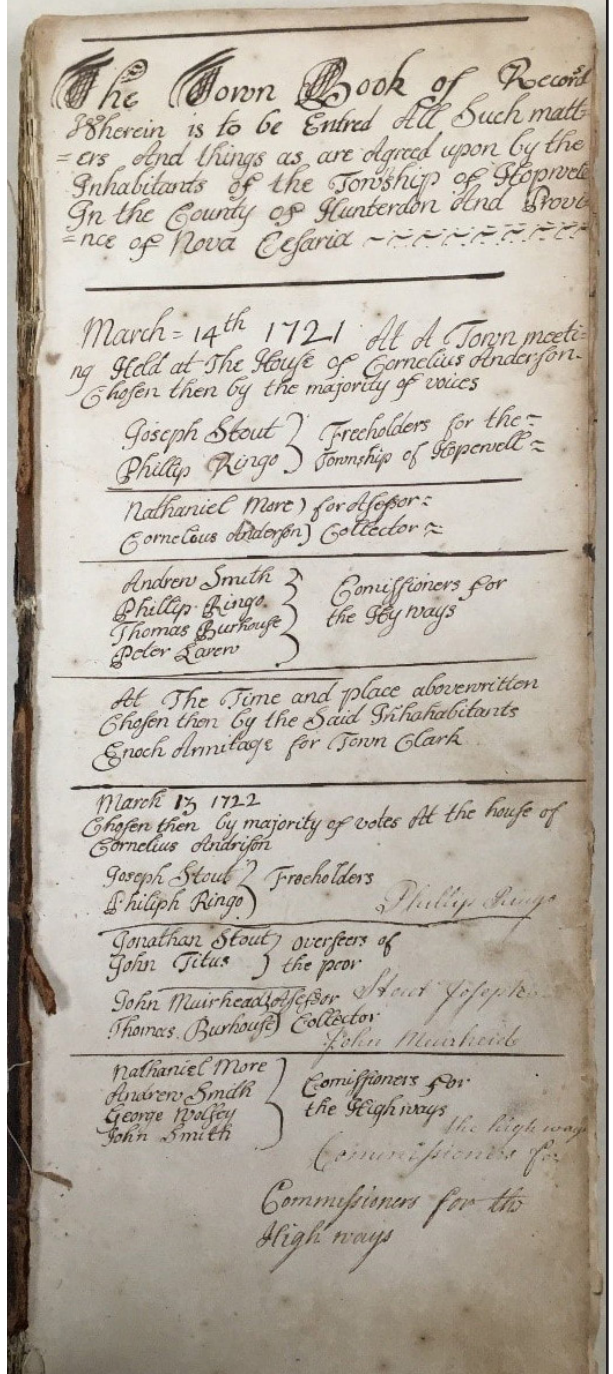 The Town Book of Record
Wherein is to be Entred All Such matt-
=ers And things as are Agreed upon by the
Inhabitants of the Township of Hopwell
In the County of Hunterdon And Provi-
=nce of Nova Cesaria
March = 14th 1721 At A Town meeti-
ng Held at The House of Cornelius Anderson-
Chosen then by the majority of voices
Joseph Stout } Freeholders for the =
Phillip Ringo } Township of Hopewell =
Nathaniel More ) for Assessor =
Cornelous Anderson ) Collector =
Andrew Smith
Phillip Ringo } Comissioners for
Thomas Burhouse } the Hy ways
Peter Larew
At The Time and place abovewritten
Chosen then by the Said Inhahabitants
Enoch Armitage for Town Clark
March 13 1722
Chosen then by majority of votes At the house of
Cornelius Andrison
Joseph Stout } Freeholders
Philiph Ringo }
Phillip Ringo
Jonathan Stout } overseers of
John Titus } the poor
John Muirhead Assessor Stout Joseph
Thomas Burhouse ) Collector
John Muirheid
Nathaniel More
Andrew Smith } Comissioners for
George Wolsey } the High ways
John Smith
the high ways
Commissioners for
Commissioners for the
High ways